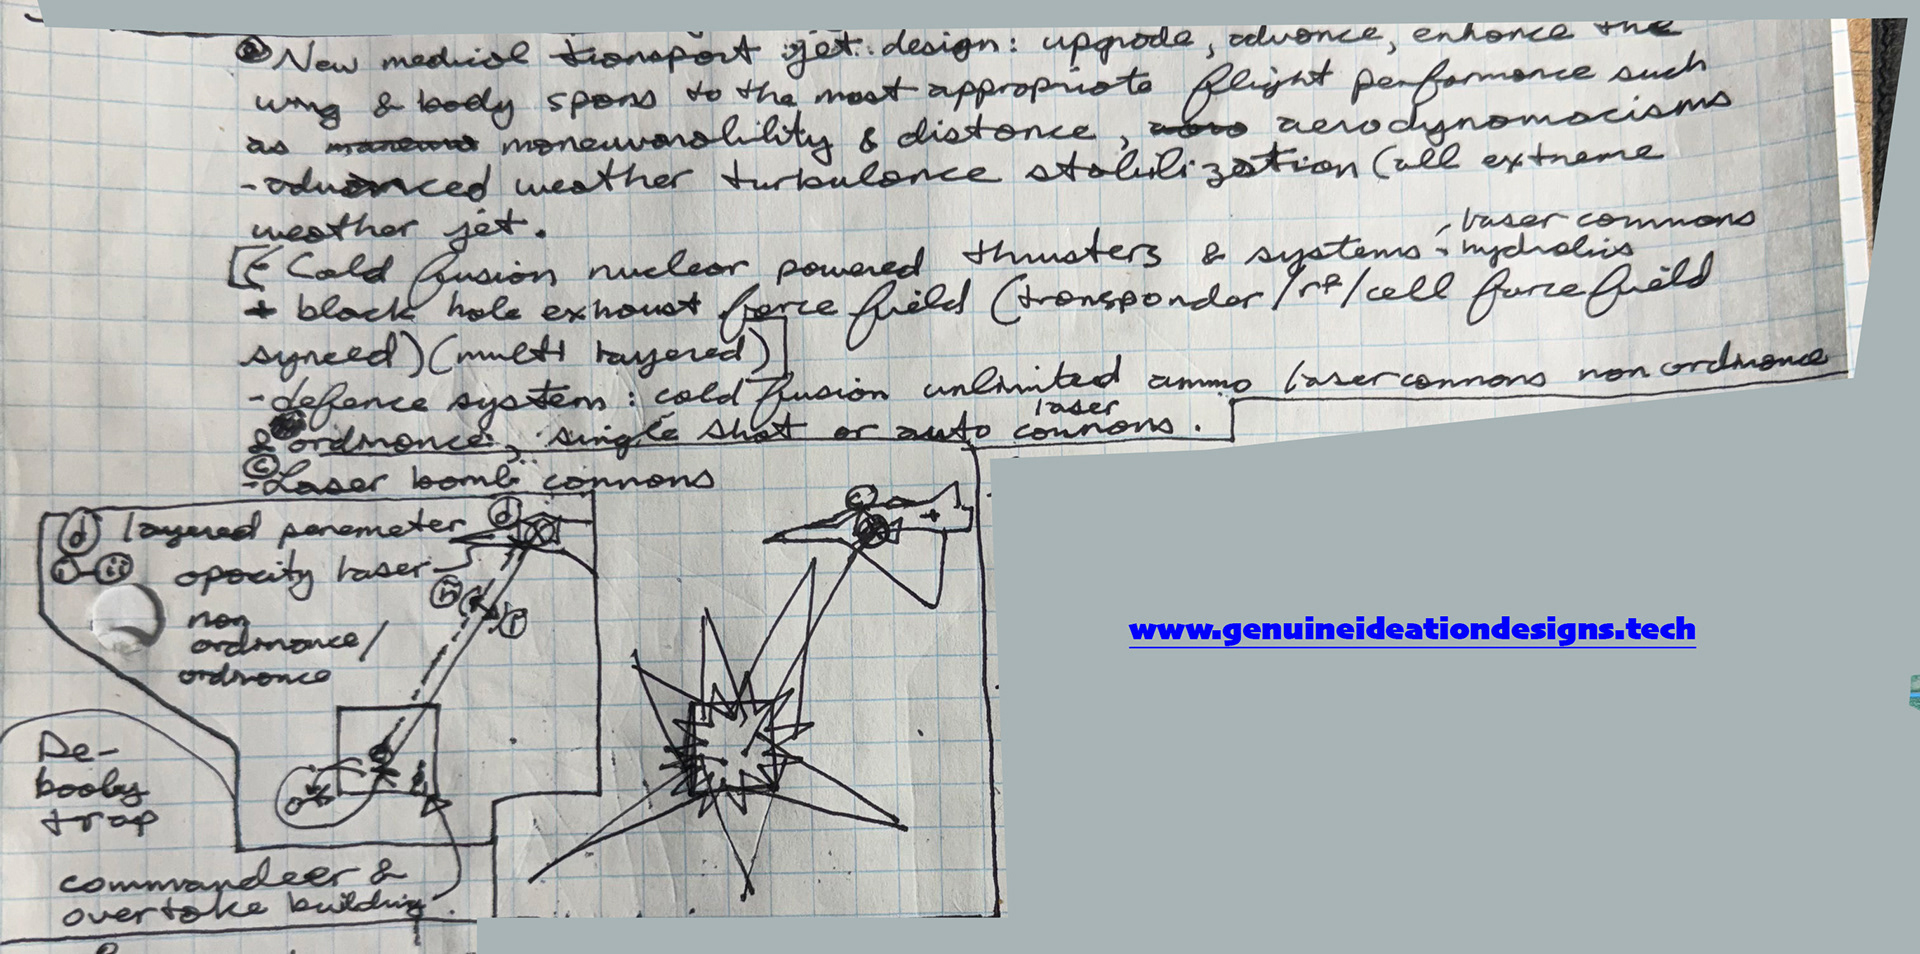 New medical transport jet design: upgrade, advance, enhance the
wing & body spans to the most appropriate flight performance such
as maneuvorability & distance, aerodynomocisms
- advanced weather turbulance stabilization (all extreme
weather jet.
- laser cannons
[E Cold fusion nuclear powered thrusters & systems - hydrolis
+ black hole exhaust force field (transponder/rf/cell force field
synced) (multi layered)]
- defence system: cold fusion unlimited ammo laser cannons non ordinance
& ordinance, single shot or auto laser cannons.
(c)
- Laser bomb cannons
(d) layered peremeter (d)
i - ii opacity laser
non
ordinance/
ordinance
De-
booby
trap
commandeer &
overtake building.
c
+
www.genuineideationdesigns.tech